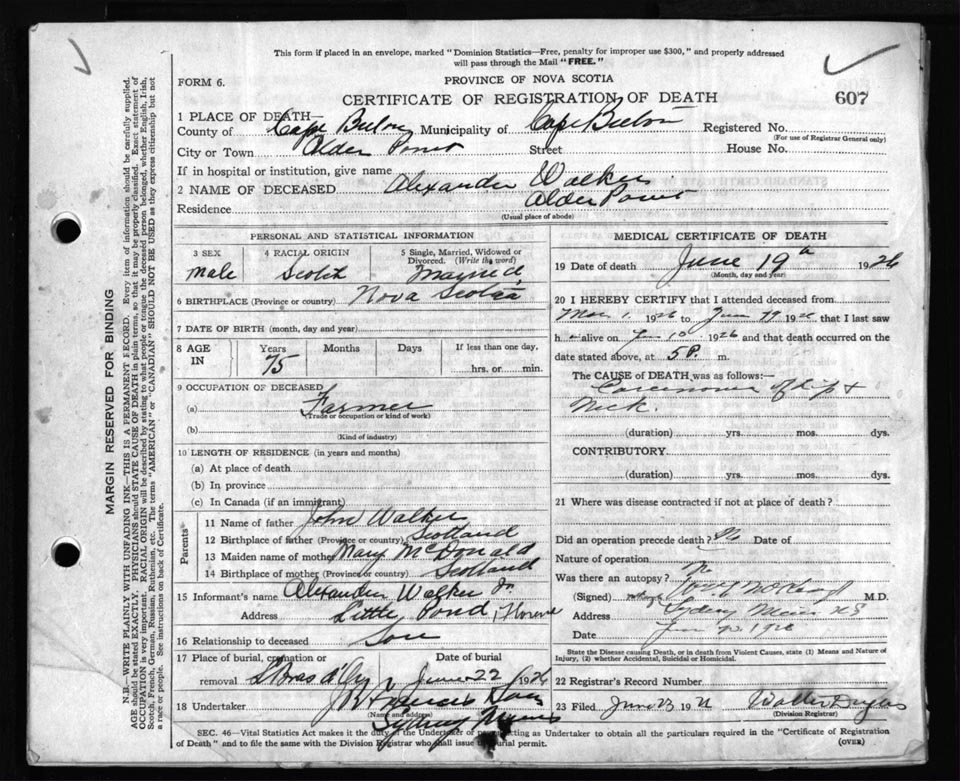 This form if placed in an envelope, marked "Dominion Statistics—Free, penalty for improper use $300," and properly addressed
will pass through the Mail "FREE."
FORM 6.
PROVINCE OF NOVA SCOTIA
CERTIFICATE OF REGISTRATION OF DEATH
607
1 PLACE OF DEATH—
County of Cape Breton Municipality of Cape Breton Registered No.
(For use of Registrar General only)
City or Town Alder Point Street House No.
If in hospital or institution, give name
2 NAME OF DECEASED Alexander Walker
Residence Alder Point
(Usual place of abode)
MARGIN RESERVED FOR BINDING
N.B.—WRITE PLAINLY WITH UNFADING INK—THIS IS A PERMANENT RECORD. Every item of information should be carefully supplied.
AGE should be stated EXACTLY. PHYSICIANS should STATE CAUSE OF DEATH in plain terms, so that it may be properly classified. Exact statement of
OCCUPATION is very important. RACIAL ORIGIN will be described by stating to what people or tongue the deceased person belonged, whether English, Irish,
Scotch, French, German, Russian, Ruthenian, etc. The terms "AMERICAN" or "CANADIAN" SHOULD NOT BE USED as they express citizenship but not
a race or people. See instructions on back of Certificate.
PERSONAL AND STATISTICAL INFORMATION
3 SEX 4 RACIAL ORIGIN 5 Single, Married, Widowed or
Divorced. (Write the word)
Male Scotch Married
6 BIRTHPLACE (Province or country) Nova Scotia
7 DATE OF BIRTH (month, day and year)
8 AGE IN Years Months Days If less than one day,
75 hrs. or min.
9 OCCUPATION OF DECEASED
(a) Farmer
(Trade or occupation or kind of work)
(b)
(Kind of industry)
10 LENGTH OF RESIDENCE (in years and months)
(a) At place of death
(b) In province
(c) In Canada (if an immigrant)
Parents
11 Name of father John Walker
12 Birthplace of father (Province or country) Scotland
13 Maiden name of mother Mary McDonald
14 Birthplace of mother (Province or country) Scotland
15 Informant's name Alexander Walker Jr
Address Little Pond
16 Relationship to deceased Son
17 Place of burial, cremation or Date of burial
removal June 22 1926
18 Undertaker
(Name and address)
Sydney Mines
MEDICAL CERTIFICATE OF DEATH
19 Date of death June 19th 1926
(Month, day and year)
20 I HEREBY CERTIFY that I attended deceased from
1. 1926 to June 19 1926, that I last saw
h alive on 10 1926 and that death occurred on the
date stated above, at 5 P. m.
The CAUSE of DEATH was as follows:—
Carcinoma of lip &
Neck.
(duration) yrs. mos. dys.
CONTRIBUTORY
(duration) yrs. mos. dys.
21 Where was disease contracted if not at place of death?
Did an operation precede death? No Date of
Nature of operation
Was there an autopsy? No
(Signed) M.D.
Address Sydney Mines NS
Date 1926
State the Disease causing Death, or in death from Violent Causes, state (1) Means and Nature of
Injury, (2) whether Accidental, Suicidal or Homicidal.
22 Registrar's Record Number
23 Filed June 23 19 Walter
(Division Registrar)
SEC. 46—Vital Statistics Act makes it the duty of the Undertaker or person acting as Undertaker to obtain all the particulars required in the "Certificate of Registration
of Death" and to file the same with the Division Registrar who shall issue the burial permit. (OVER)